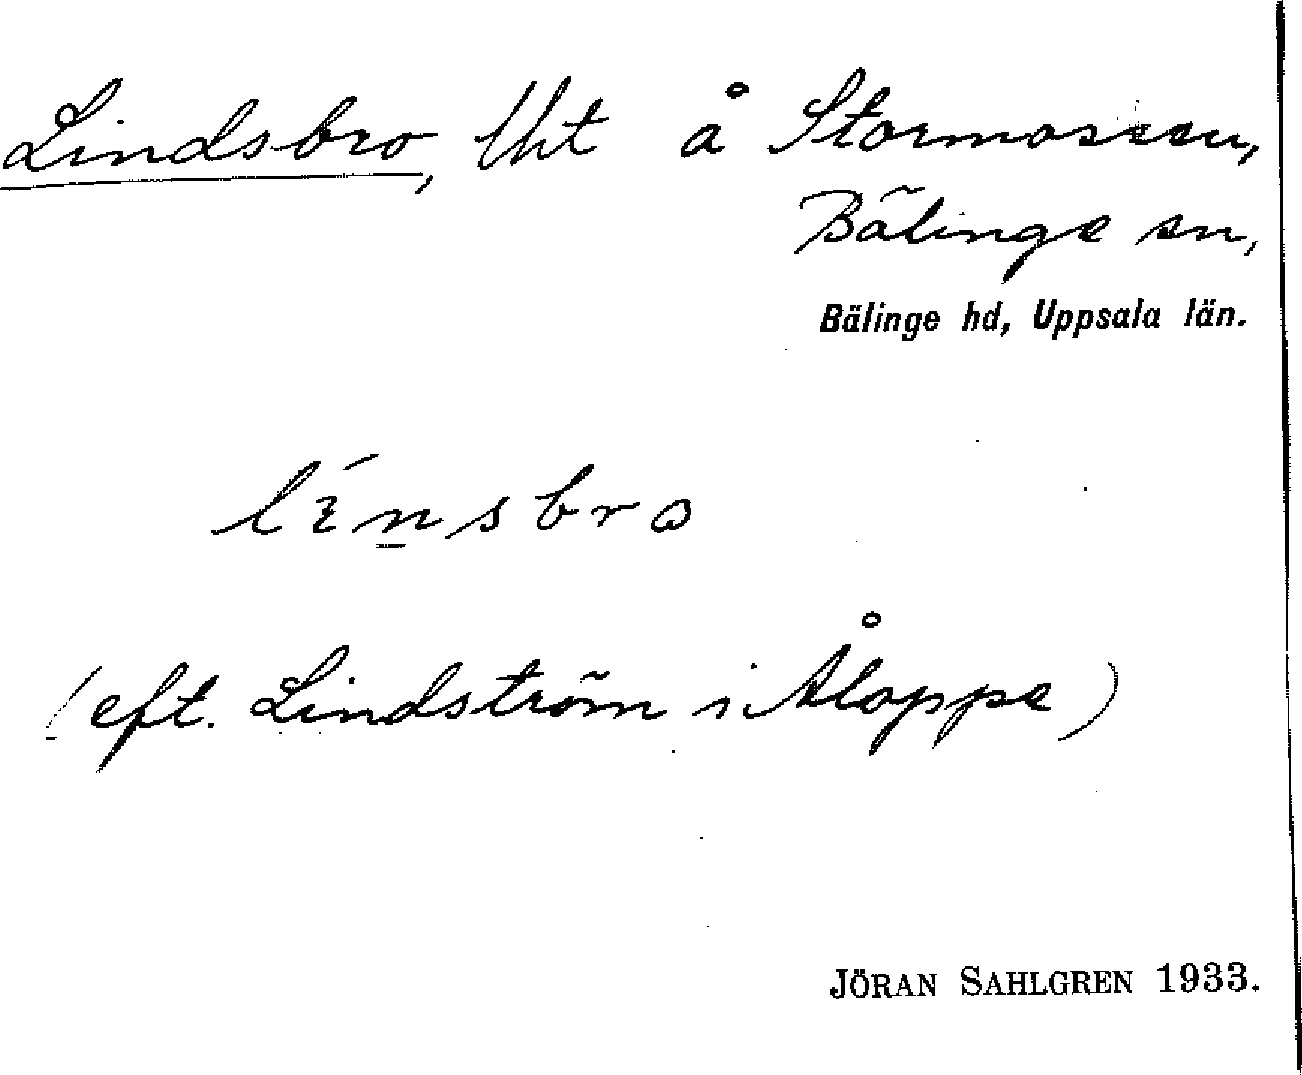 Lindsbro, lht å Stormossen,
Bälinge sn,
Bälinge hd, Uppsala län.
(eft. Lindström i Åloppe)
JÖRAN SAHLGREN 1933.